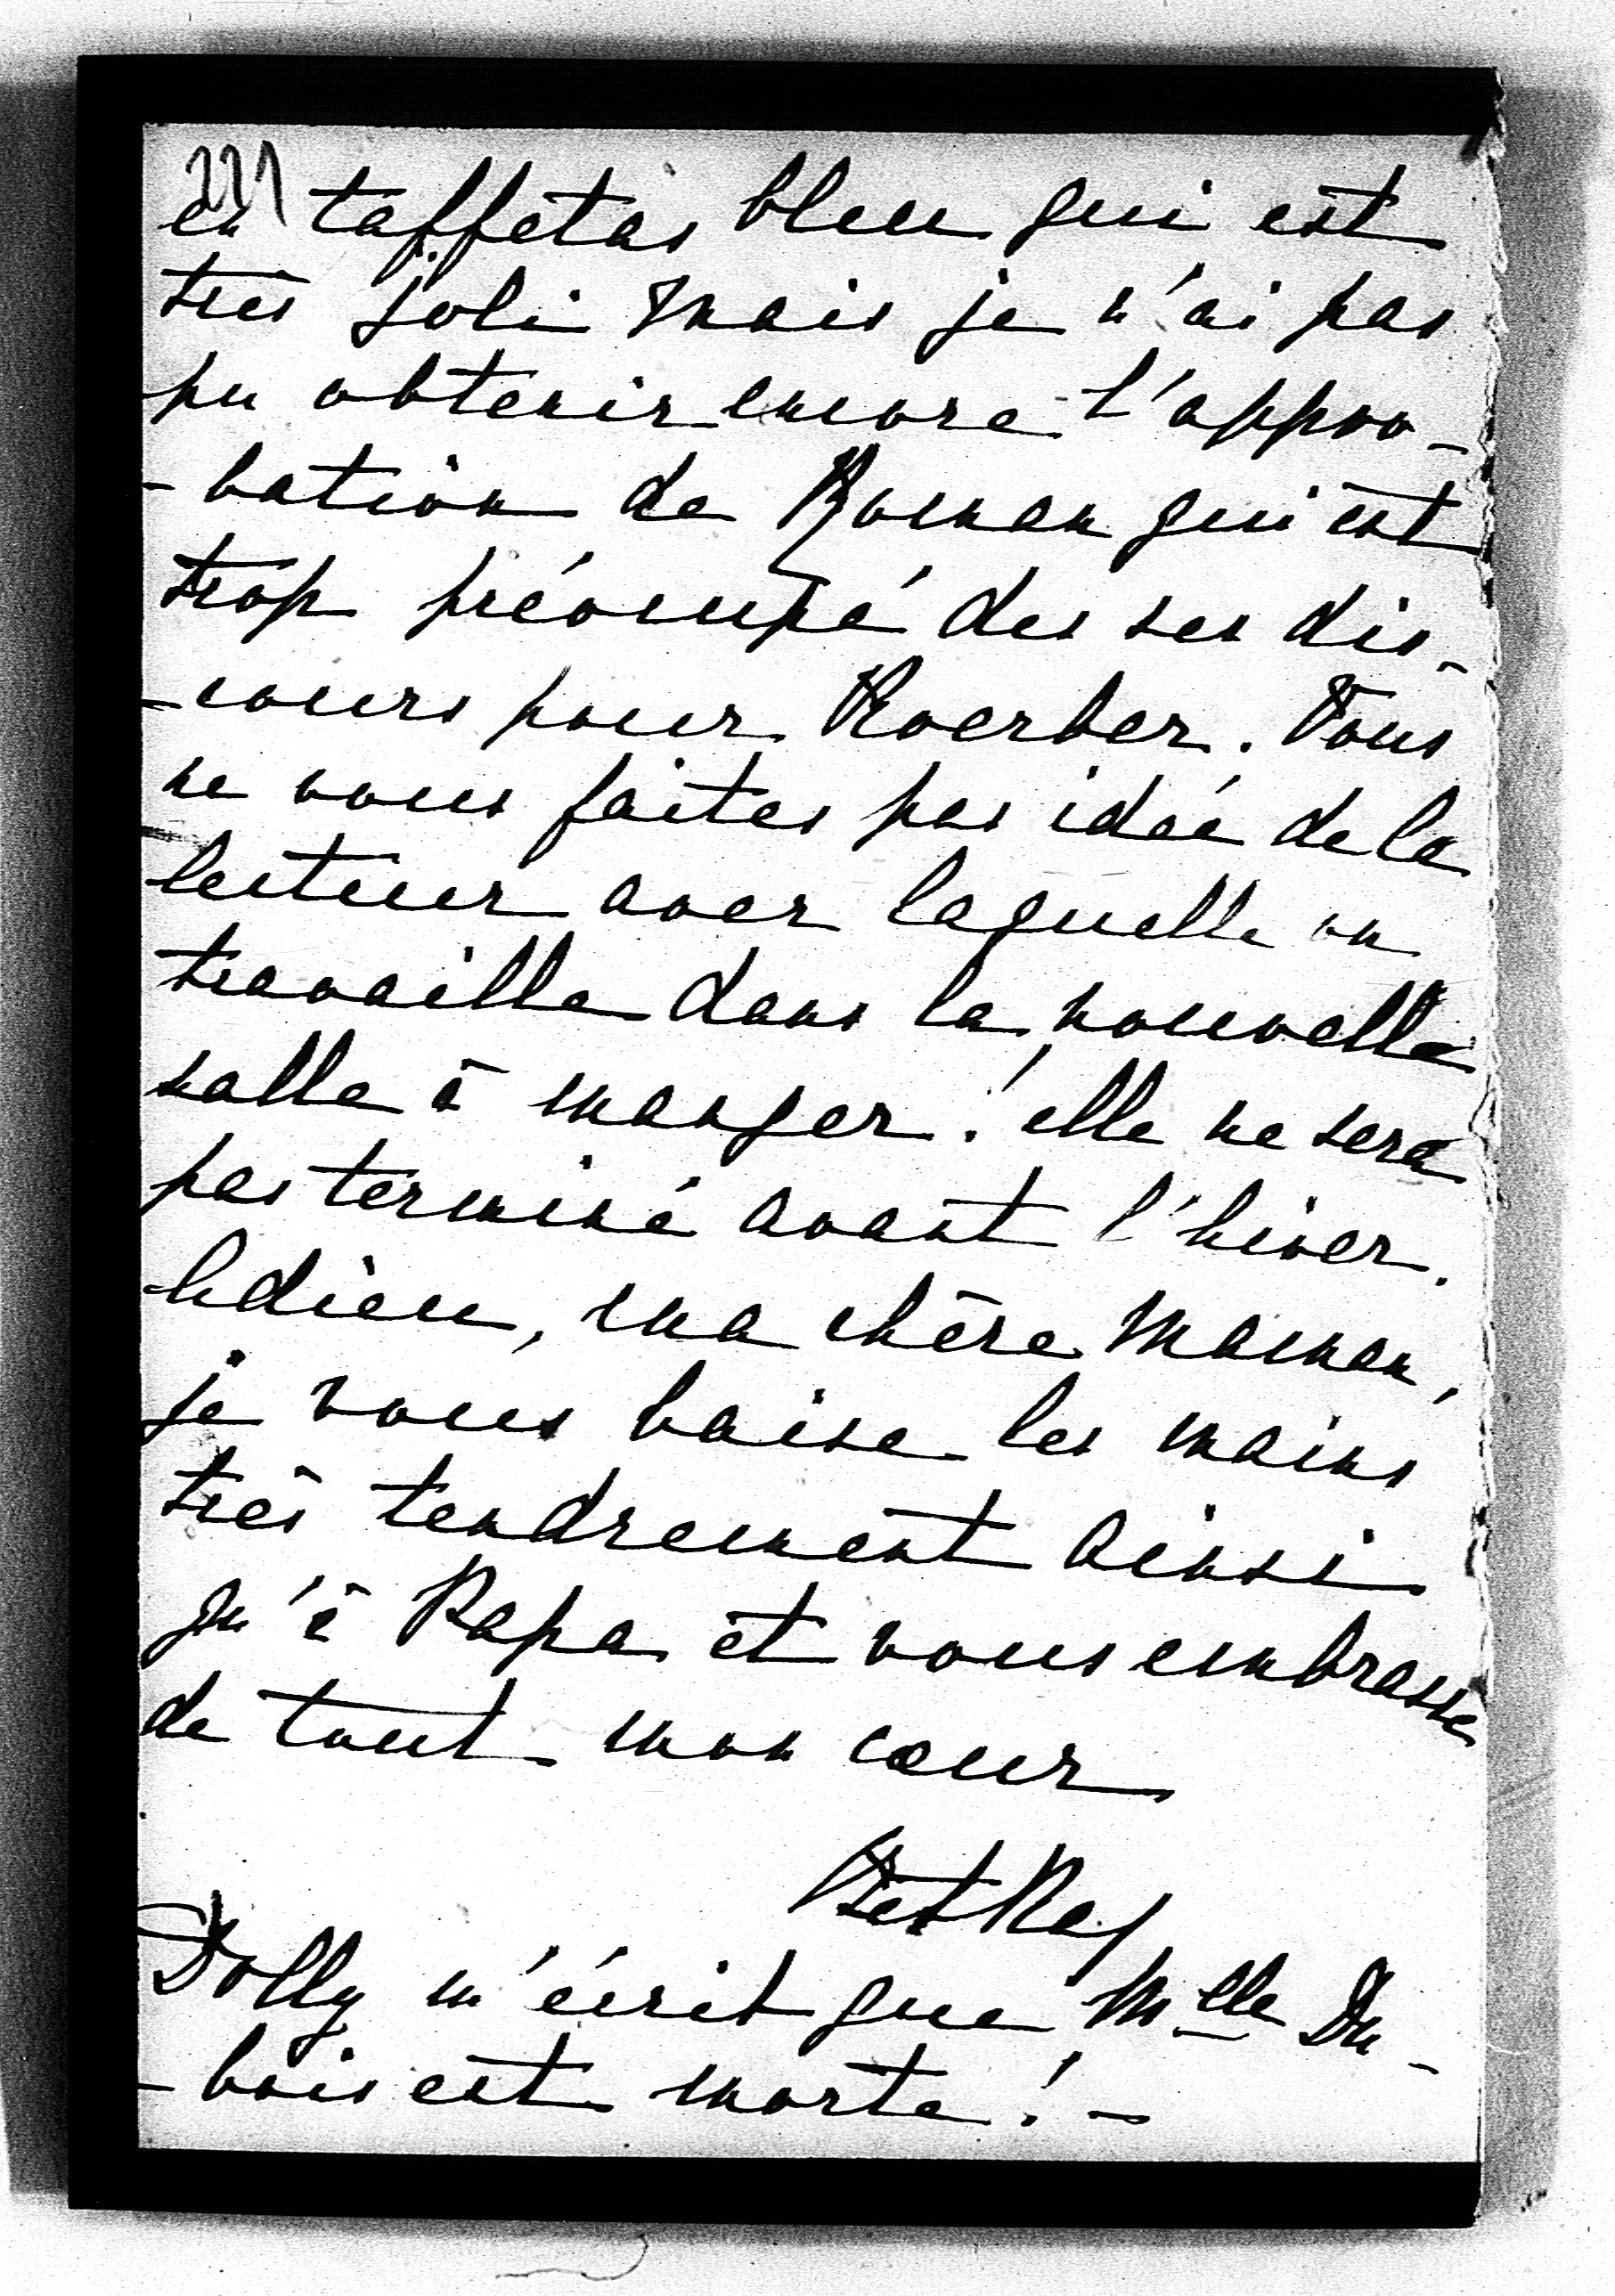 221
en taffetas bleu qui est
très joli mais je n'ai pas
pu obtenir encore l'appro-
-bation de Roman qui est
trop préoccupé des ses dis-
-cours pour Koerber. Vous
ne vous faites pas idée de la
lenteur avec laquelle on
travaille dans la nouvelle
salle à manger! elle ne sera
pas terminé avant l'hiver.
Adieu, ma chère Maman,
je vous baise les mains
très tendrement ainsi
qu'à Papa et vous embrasse
de tout mon cœur
Dolly m'écrit que Mlle Du-
-bois est morte! -